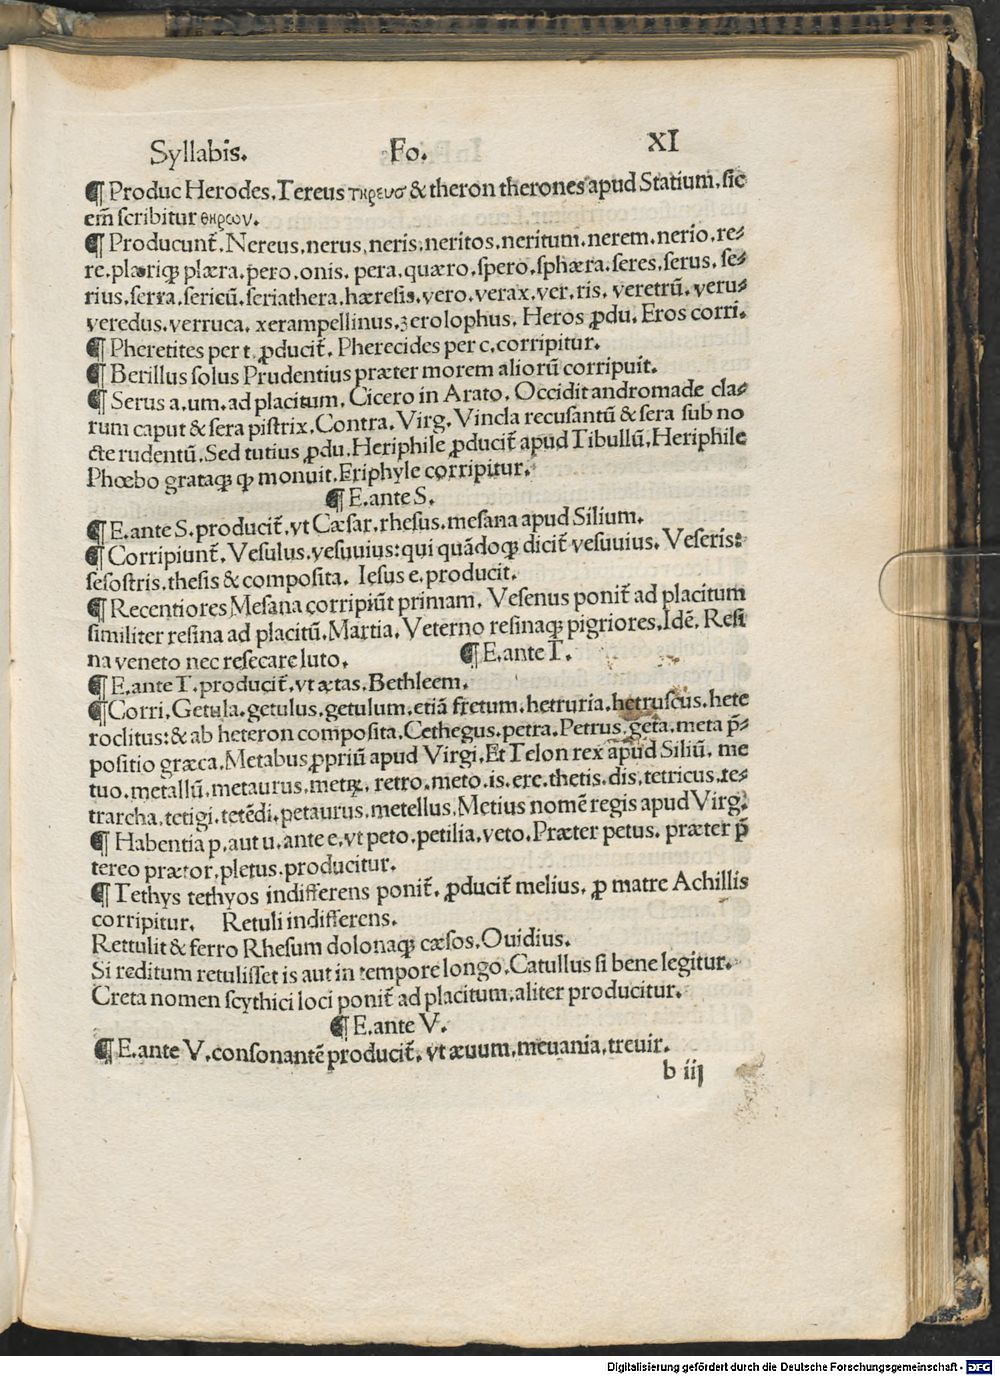 Syllabis. Fo. XI
¶ Produc Herodes. Tereus τηρευσ & theron therones apud Statium, sic
em̄ scribitur θηρων.
¶ Producunt̄. Nereus, nerus, neris, neritos, neritum. nerem. nerio, re-
re. plæriqꝫ plæra. pero, onis. pera, quæro, spero, sphæra. seres, serus. se-
rius, serra. sericū. seriathera. hæresis. vero. verax. ver, ris. veretrū. veru-
veredus. verruca. xerampellinus. zerolophus. Heros ꝓdu. Eros corri.
¶ Pheretites per t. ꝓducit̄. Pherecides per c, corripitur.
¶ Berillus solus Prudentius præter morem aliorū corripuit.
¶ Serus a. um. ad placitum. Cicero in Arato. Occidit andromade cla-
rum caput & sera pistrix. Contra. Virg. Vincla recusantū & sera sub no
cte rudentū. Sed tutius ꝓdu. Heriphile ꝓducit̄ apud Tibullū. Heriphile
Phœbo grataqꝫ ꝙ monuit. Eriphyle corripitur.
¶ E. ante S.
¶ E. ante S. producit̄. vt Cæsar. rhesus. mesana apud Silium.
¶ Corripiunt̄. Vesulus. vesuuius: qui quādoqꝫ dicit̄ vesuuius. Veseris:
sesostris. thesis & composita. Iesus e. producit.
¶ Recentiores Mesana corripiūt primam. Vesenus ponit̄ ad placitum
similiter resina ad placitū. Martia. Veterno resinaqꝫ pigriores. Idē. Resi
na veneto nec resecare luto. ¶ E. ante T.
¶ E. ante T. producit̄. vt ætas. Bethleem.
¶ Corri. Getula. getulus. getulum. etiā fretum. hetruria. hetruscus. hete
roclitus: & ab heteron composita. Cethegus. petra. Petrus. geta. meta p̄-
positio græca. Metabus ꝓpriū apud Virgi. Et Telon rex apud Siliū. me
tuo. metallū. metaurus. metꝝ. retro. meto. is. ere. thetis. dis. tetricus. te-
trarcha. tetigi. tetēdi. petaurus. metellus. Metius nomē regis apud Virg.
¶ Habentia p. aut u. ante e. vt peto. petilia. veto. Præter petus. præter p̄
tereo prætor. pletus. producitur.
¶ Tethys tethyos indifferens ponit̄. ꝓducit̄ melius. ꝓ matre Achillis
corripitur. Retuli indifferens.
Rettulit & ferro Rhesum dolonaqꝫ cæsos. Ouidius.
Si reditum retulisset is aut in tempore longo. Catullus si bene legitur.
Creta nomen scythici loci ponit̄ ad placitum. aliter producitur.
¶ E. ante V.
¶ E. ante V. consonantē producit̄. vt æuum. meuania. treuir.
b iij
Digitalisierung gefördert durch die Deutsche Forschungsgemeinschaft - DFG